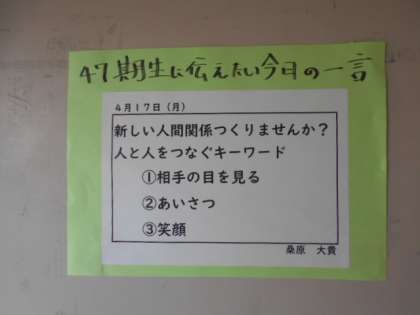 47期生に伝えたい今日の一言
4月17日（月）
新しい人間関係つくりませんか？
人と人をつなぐキーワード
①相手の目を見る
②あいさつ
③笑顔
桑原　大貴